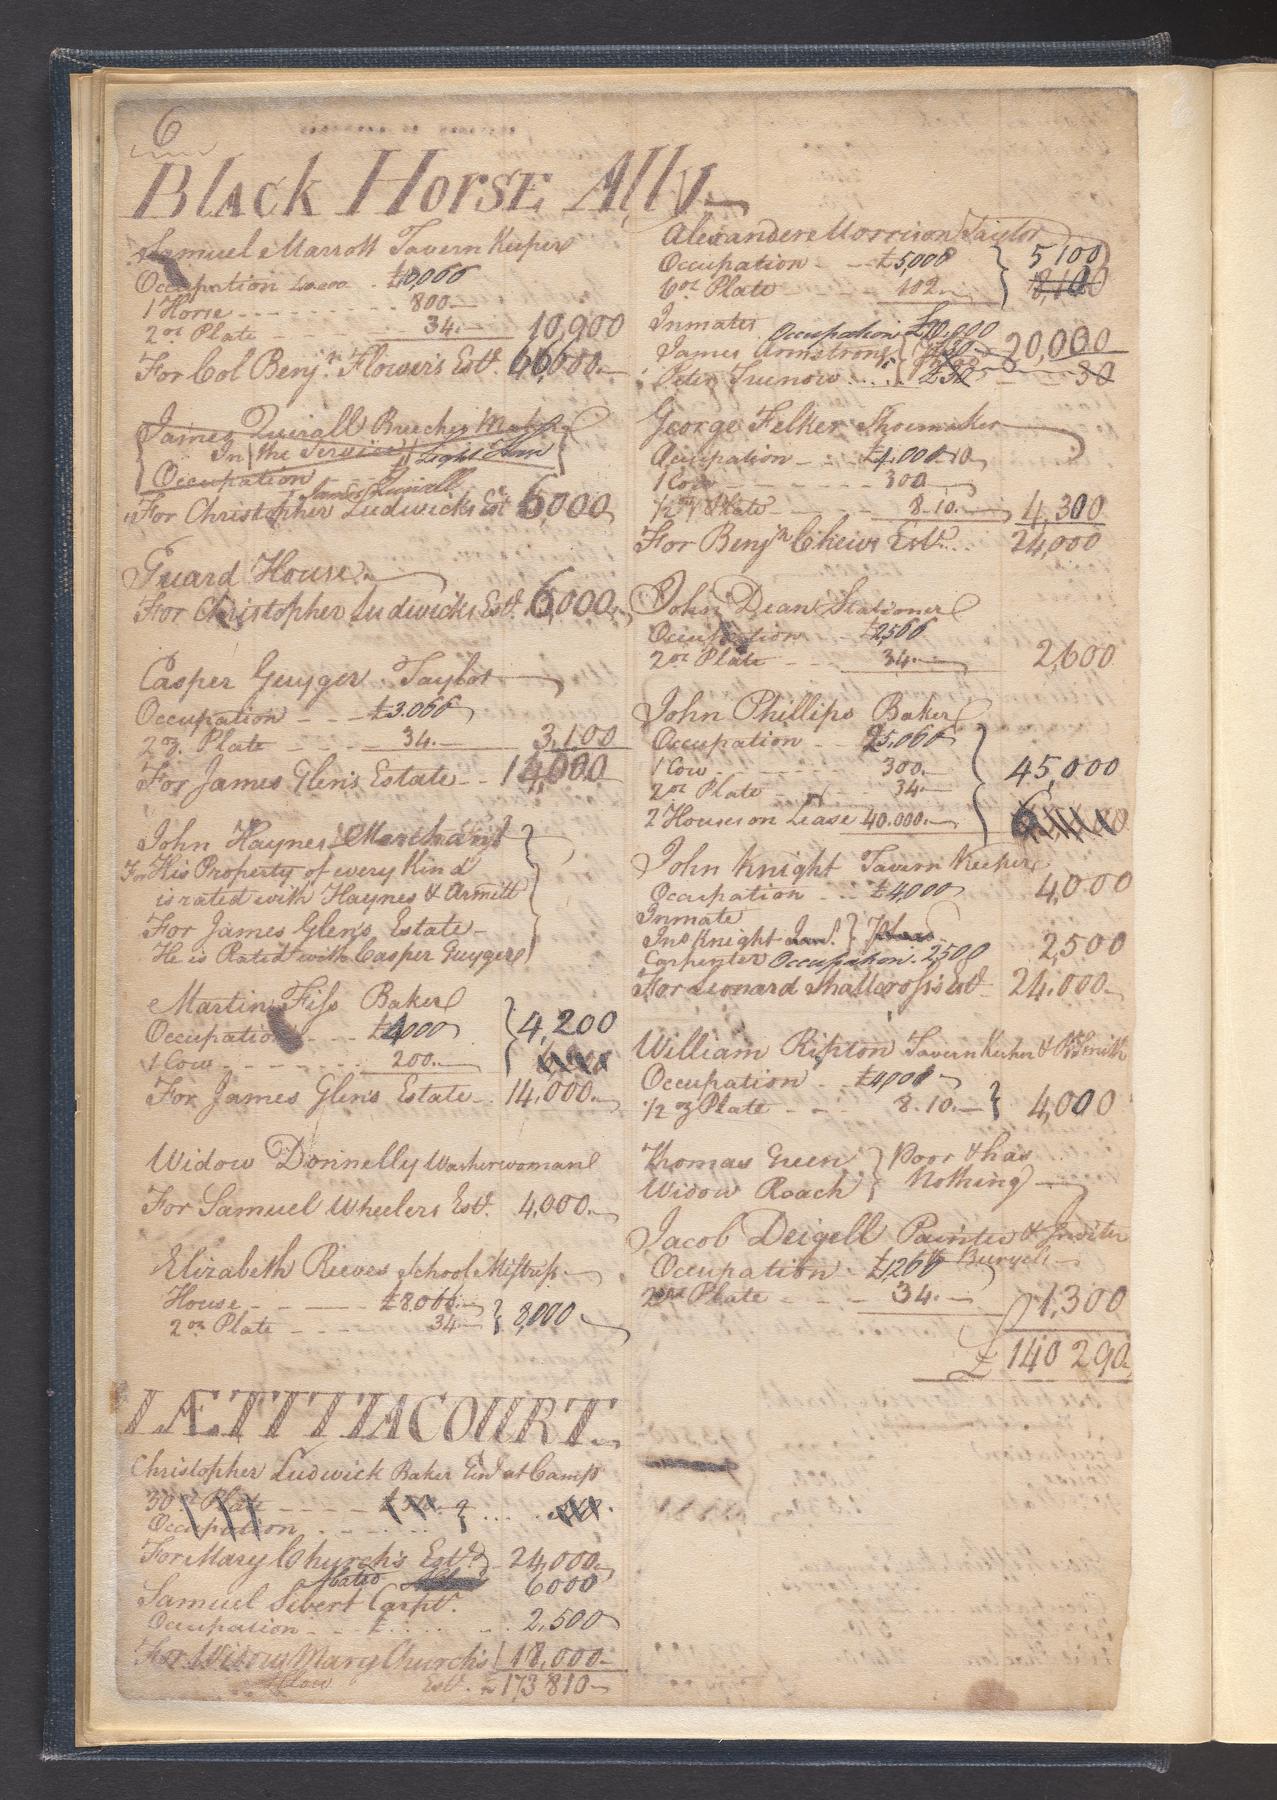 6
Black Horse Ally
Samuel Marrott Tavern Keeper
Occupation £10,000
1 Horse 800
2 oz Plate 34 10,900
For Col Benj.n Flowers Est.
James Quirall Breeches Maker
In the Service Light Horse
Occupation
For Christopher Ludwicks Est 6,000
Guard House
For Christopher Ludwicks Est. 6,000
Casper Guyger Taylor
Occupation £3.066
2 oz. Plate 34 3,100
For James Glen's Estate 14,000
John Haynes Merchant
For His Property of every Kind
is rated with Haynes & Armitt
For James Glen's Estate
He is Rated with Casper Guyger
Martin Fiss Baker
Occupation £4000 4,200
1 Cow 200
For James Glens Estate 14,000
Widow Donnelly Washerwoman
For Samuel Wheelers Est. 4,000
Elizabeth Reeves School Mistress
House £8,066
2 oz Plate 34 8,000
LÆTITIA COURT
Christopher Ludwick Baker at Camp
30 oz Plate
Occupation
For Mary Church's Est. 24,000
6000
Samuel Sibert Carpt.
Occupation £ 2,500
For Widow Mary Church's 18,000
Est. £173810
Alexander Morrison Taylor
Occupation £5,000 5100
6 oz Plate 102
Inmates Occupation £10,000
James Armstrong 20,000
Peter 250 30
George Felker Shoemaker
Occupation £4,000
1 Cow 300
1/2 oz Plate 8.10 4,300
For Benj.n Chews Est. 24,000
John Dean Stationer
Occupation £2566
2 oz Plate 34 2,600
John Phillips Baker
Occupation £5,066
1 Cow 300 45,000
2 oz Plate 34
2 Houses on Lease 40.000
John Knight Tavern Keeper
Occupation £4000 4,000
Inmate
Jno Knight
Carpenter Occupation 2,500 2,500
For Leonard Shallcross's Est. 24,000
William Ripton Tavern Keeper &
Occupation £4,000
1/2 oz Plate 8.10 4,000
Thomas Green Poor & has
Widow Roach Nothing
Jacob Deigell Painter &
Occupation £1266
2 oz Plate 34 1,300
£ 140 290